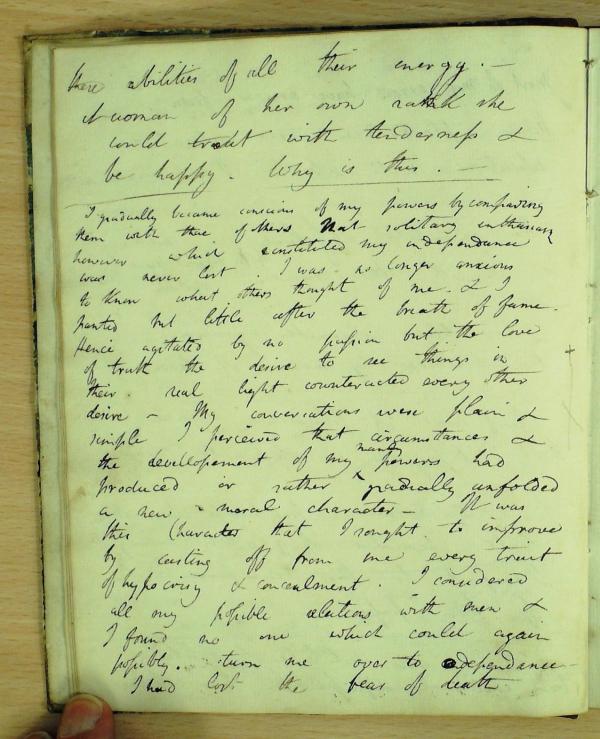 there abilities of all their energy. —
A woman of her own rank she
could treat with tenderness &
be happy. Why is this. —
I gradually became conscious of my powers by comparing
them with those of others that solitary enthusiasm
however which constituted my independance
was never lost. I was no longer anxious
to know what others thought of me. & I
panted but little after the breath of fame.
Hence agitated by no passion but the love
of truth the desire to see things in
their real light counteracted every other
desire — My conversations were plain &
simple I perceived that circumstances &
the developement of my powers had
produced or rather gradually unfolded
a new moral character — It was
this Character that I sought to improve
by casting off from me every trait
of hypocrisy & concealment. I considered
all my possible relations with men &
I found no one which could again
possibly turn me over to dependance —
I had lost the fear of death